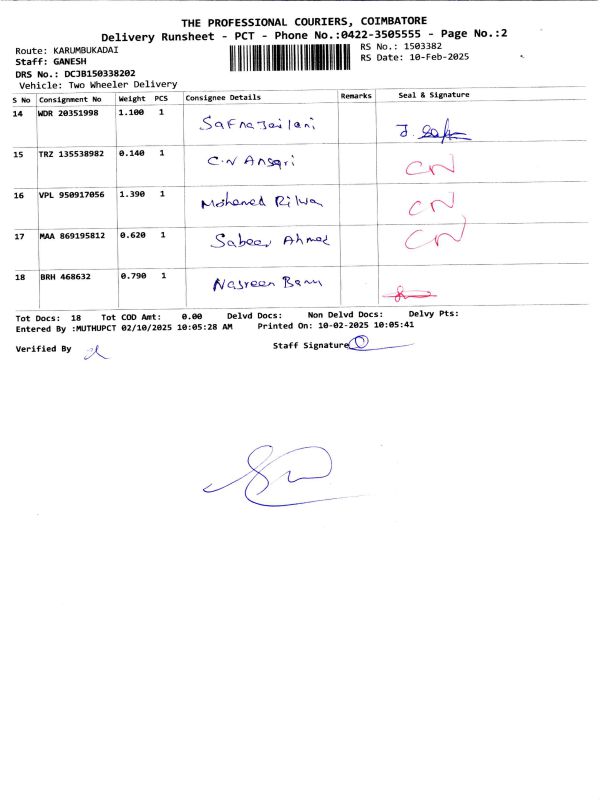 THE PROFESSIONAL COURIERS, COIMBATORE
Delivery Runsheet - PCT - Phone No.:0422-3505555 - Page No.:2
Route: KARUMBUKADAI
RS No.: 1503382
Staff: GANESH
RS Date: 10-Feb-2025
DRS No.: DCJB150338202
Vehicle: Two Wheeler Delivery
S No Consignment No Weight PCS Consignee Details Remarks Seal & Signature
14 WDR 20351998 1.100 1 Safna Jailani J.
15 TRZ 135538982 0.140 1 C.N Ansari CN
16 VPL 950917056 1.390 1 Mohamed Rilwa CN
17 MAA 869195812 0.620 1 Sabeer Ahmed CN
18 BRH 468632 0.790 1 Nasreen Banu
Tot Docs: 18 Tot COD Amt: 0.00 Delvd Docs: Non Delvd Docs: Delvy Pts:
Entered By :MUTHUPCT 02/10/2025 10:05:28 AM Printed On: 10-02-2025 10:05:41
Verified By Staff Signature